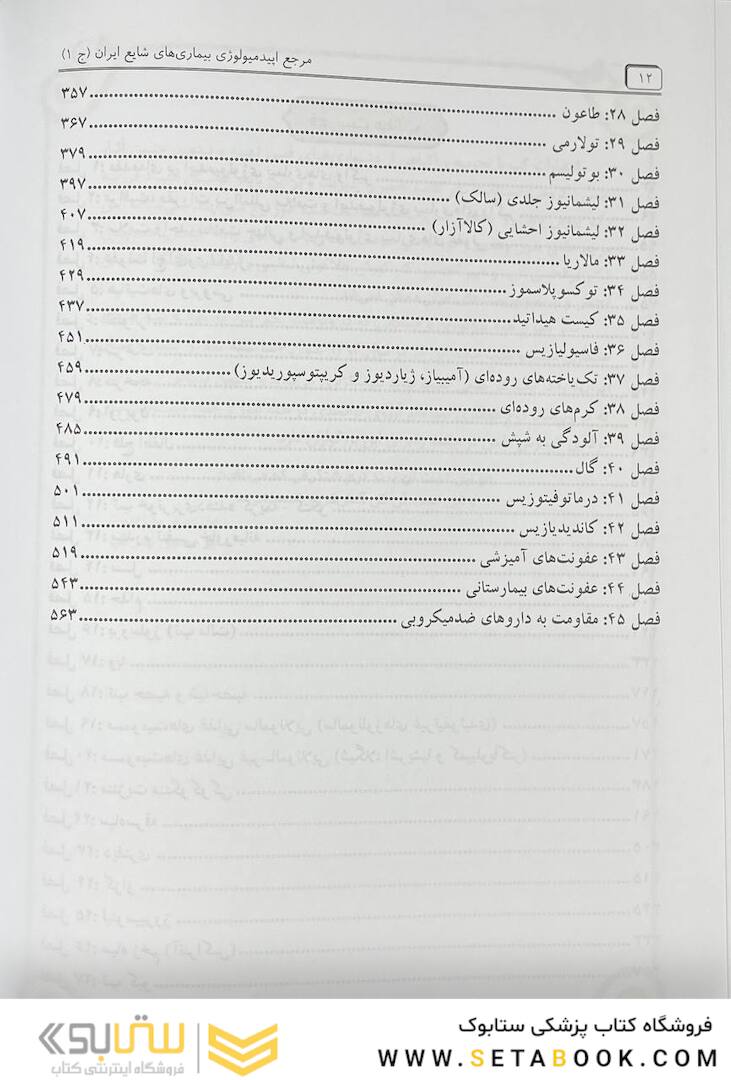 ۱۲
مرجع اپیدمیولوژی بیماری‌های شایع ایران (ج ۱)
فصل ۲۸: طاعون ..... ۳۵۷
فصل ۲۹: تولارمی ..... ۳۶۷
فصل ۳۰: بوتولیسم ..... ۳۷۹
فصل ۳۱: لیشمانیوز جلدی (سالک) ..... ۳۹۷
فصل ۳۲: لیشمانیوز احشایی (کالاآزار) ..... ۴۰۷
فصل ۳۳: مالاریا ..... ۴۱۹
فصل ۳۴: توکسوپلاسموز ..... ۴۲۹
فصل ۳۵: کیست هیداتید ..... ۴۳۷
فصل ۳۶: فاسیولیازیس ..... ۴۵۱
فصل ۳۷: تک‌یاخته‌های روده‌ای (آمیبیاز، ژیاردیوز و کریپتوسپوریدیوز) ..... ۴۵۹
فصل ۳۸: کرم‌های روده‌ای ..... ۴۷۹
فصل ۳۹: آلودگی به شپش ..... ۴۸۵
فصل ۴۰: گال ..... ۴۹۱
فصل ۴۱: درماتوفیتوزیس ..... ۵۰۱
فصل ۴۲: کاندیدیازیس ..... ۵۱۱
فصل ۴۳: عفونت‌های آمیزشی ..... ۵۱۹
فصل ۴۴: عفونت‌های بیمارستانی ..... ۵۴۳
فصل ۴۵: مقاومت به داروهای ضدمیکروبی ..... ۵۶۳
فروشگاه کتاب پزشکی ستابوک
WWW.SETABOOK.COM
ستابوک
فروشگاه اینترنتی کتاب